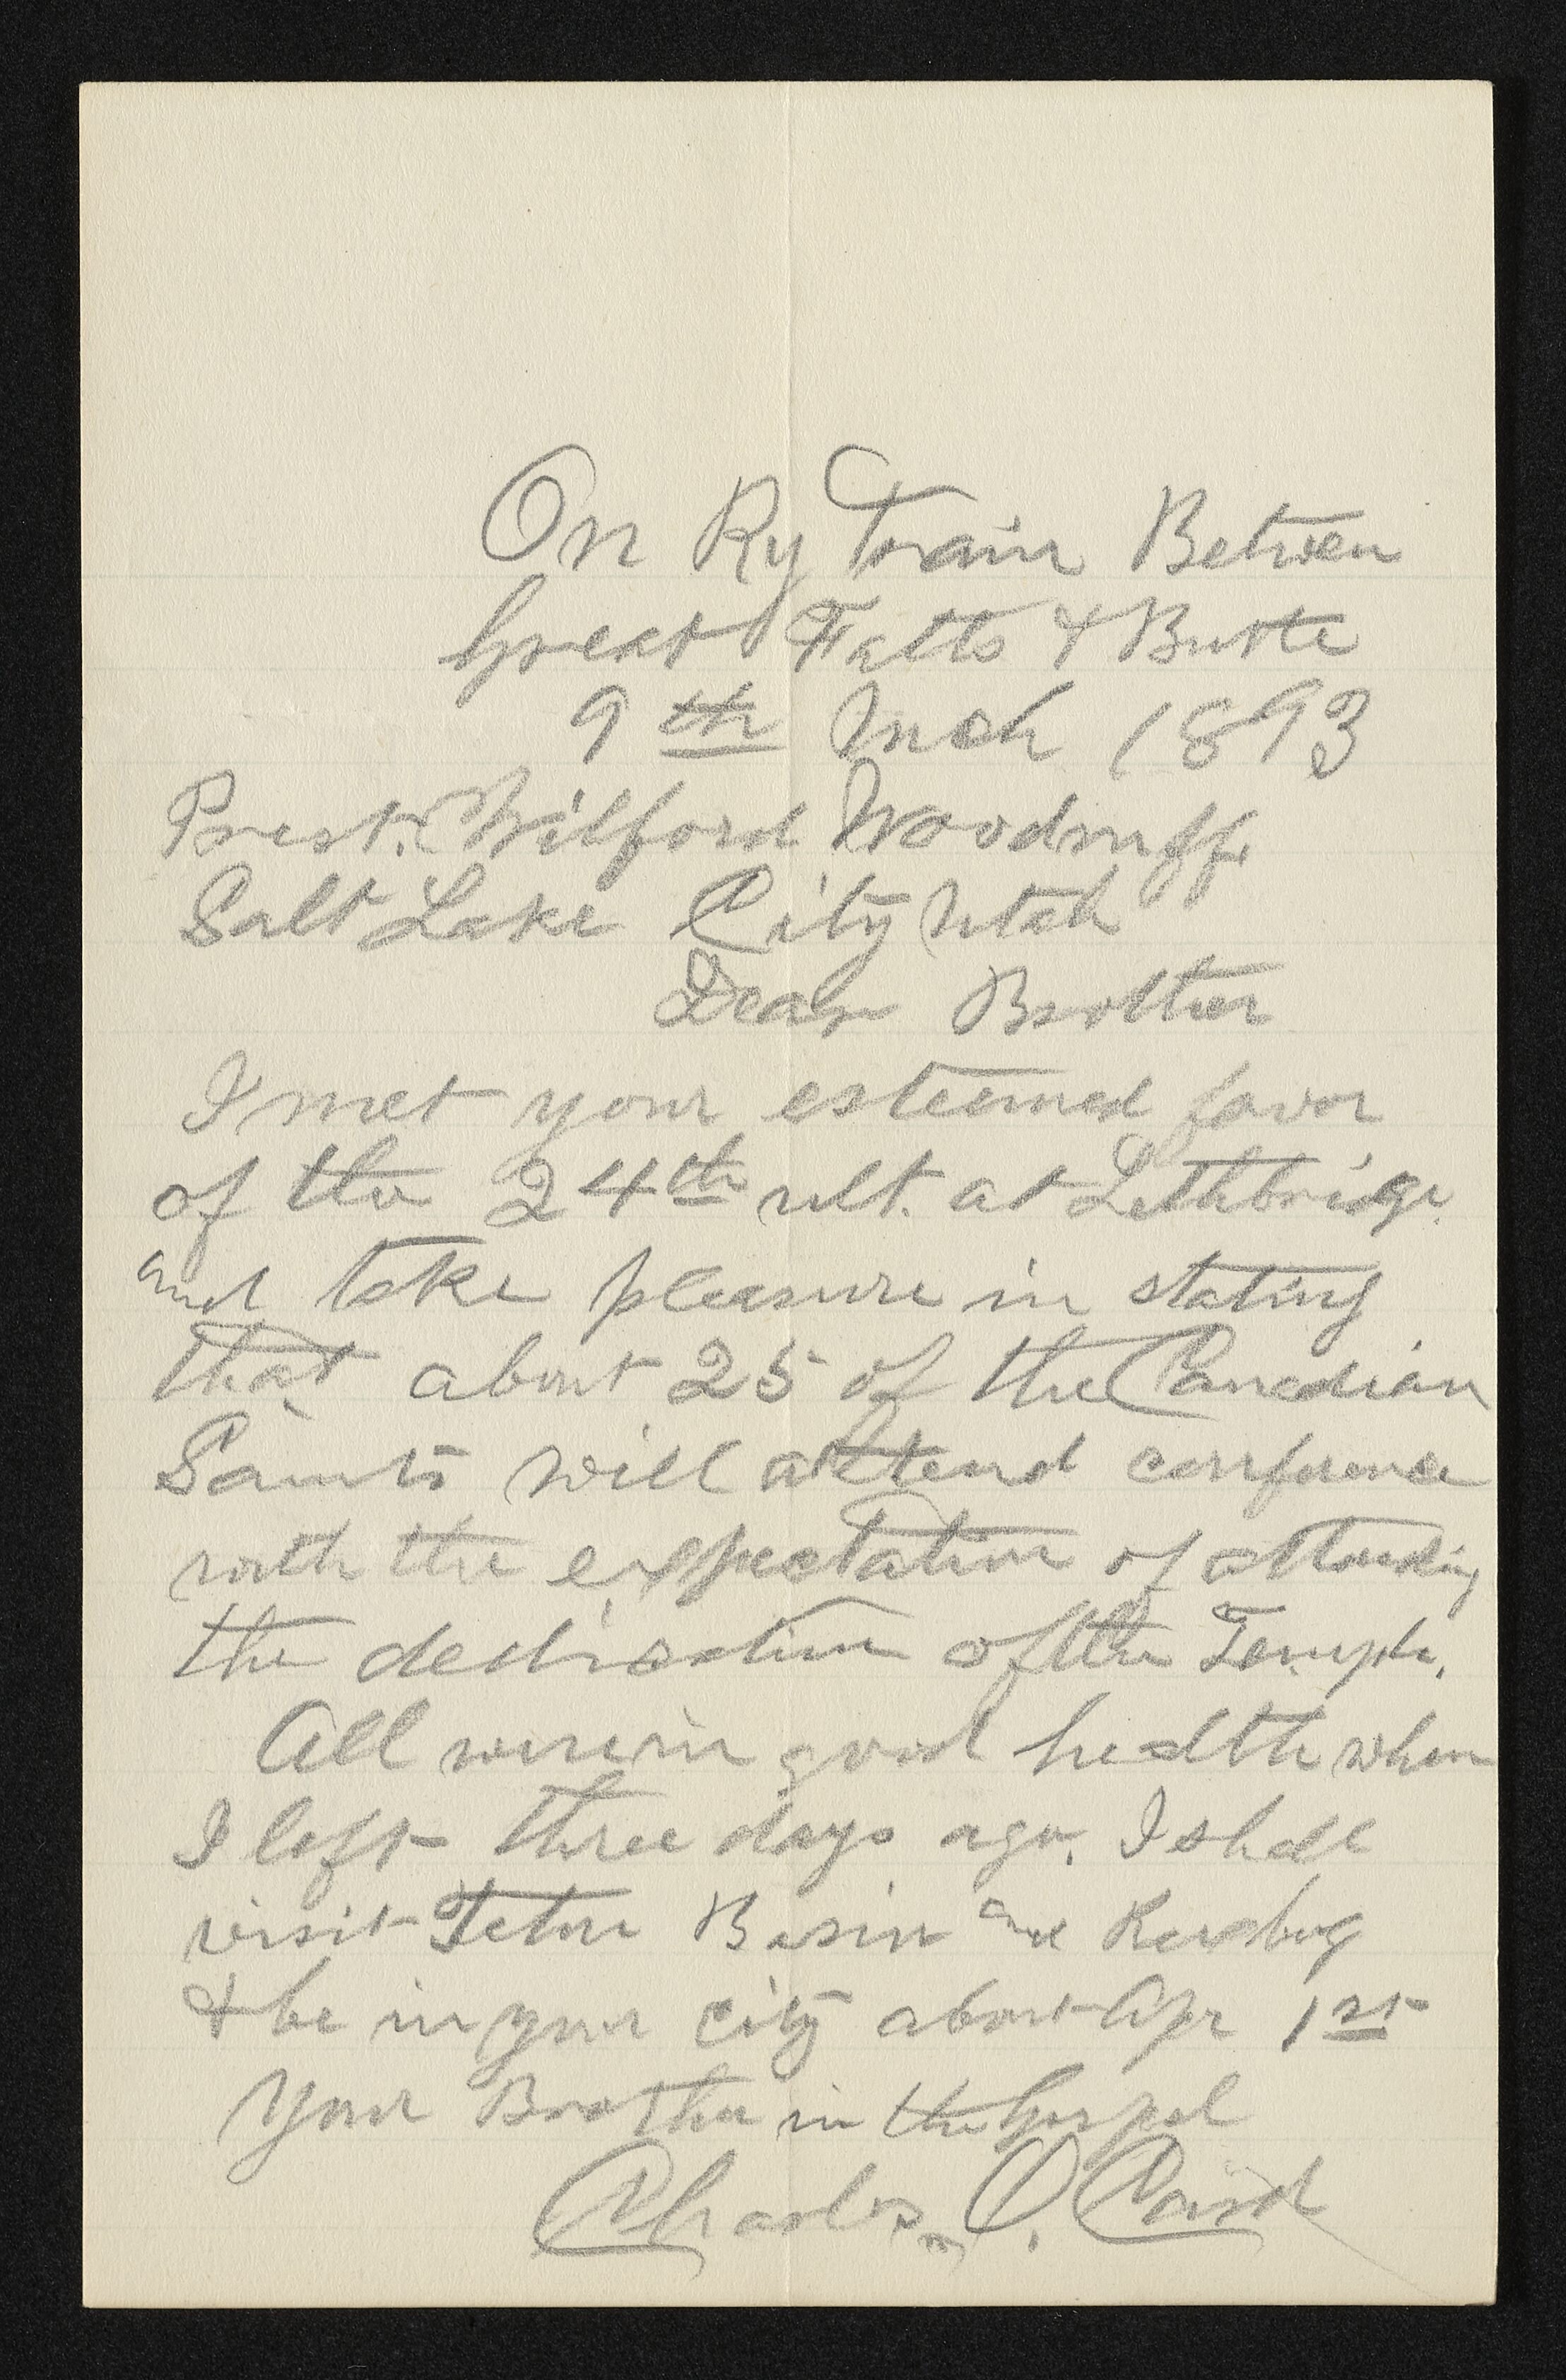 On Ry Train Between
Great Falls & Butte
9th Mch 1893
Prest. Wilford Woodruff.
Salt Lake City Utah
Dear Brother
I met your esteemed favor
of the 24th ult. at Lethbridge.
and take pleasure in stating
that about 25 of the Canadian
Saints will attend conference
with the expectation of attending
the dedication of the Temple.
All were in good health when
I left three days ago. I shall
visit Teton Basin and Rexburg
& be in your city about Apr 1st
Your Brother in the Gospel
Charles O. Card